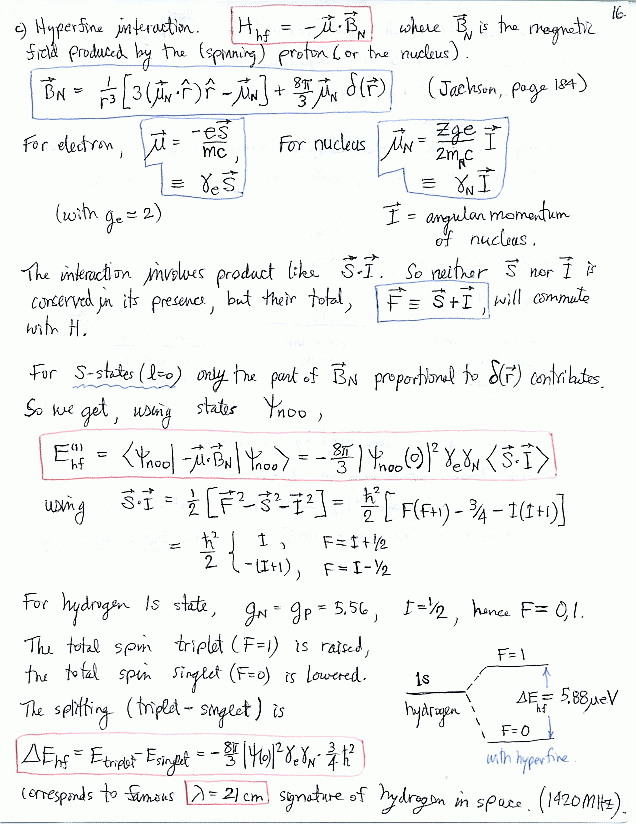 16.
c) Hyperfine interaction. H_hf = -μ⃗·B⃗_N where B⃗_N is the magnetic
field produced by the (spinning) proton (or the nucleus).
B⃗_N = 1/r³ [3(μ⃗_N·r̂)r̂ - μ⃗_N] + 8π/3 μ⃗_N δ(r⃗) (Jackson, page 184)
For electron, μ⃗ = -eS⃗/mc, For nucleus μ⃗_N = Zge/2m_Nc I⃗
≡ γ_e S⃗ ≡ γ_N I⃗
(with g_e = 2) I⃗ = angular momentum
of nucleus.
The interaction involves product like S⃗·I⃗. So neither S⃗ nor I⃗ is
conserved in its presence, but their total, F⃗ ≡ S⃗+I⃗, will commute
with H.
For S-states (l=0) only the part of B⃗_N proportional to δ(r⃗) contributes.
So we get, using states Ψ_n00,
E_hf^(1) = ⟨Ψ_n00| -μ⃗·B⃗_N |Ψ_n00⟩ = -8π/3 |Ψ_n00(0)|² γ_e γ_N ⟨S⃗·I⃗⟩
using S⃗·I⃗ = 1/2 [F⃗²-S⃗²-I⃗²] = ħ²/2 [F(F+1) - 3/4 - I(I+1)]
= ħ²/2 { I, F=I+1/2
-(I+1), F=I-1/2
For hydrogen 1s state, g_N = g_P = 5.56, I=1/2, hence F=0,1.
The total spin triplet (F=1) is raised,
the total spin singlet (F=0) is lowered.
The splitting (triplet-singlet) is
F=1
1s
hydrogen
ΔE_hf = 5.88μeV
F=0
with hyperfine.
ΔE_hf = E_triplet - E_singlet = -8π/3 |Ψ(0)|² γ_e γ_N · 3/4 ħ²
corresponds to famous λ = 21 cm signature of hydrogen in space. (1420 MHz).